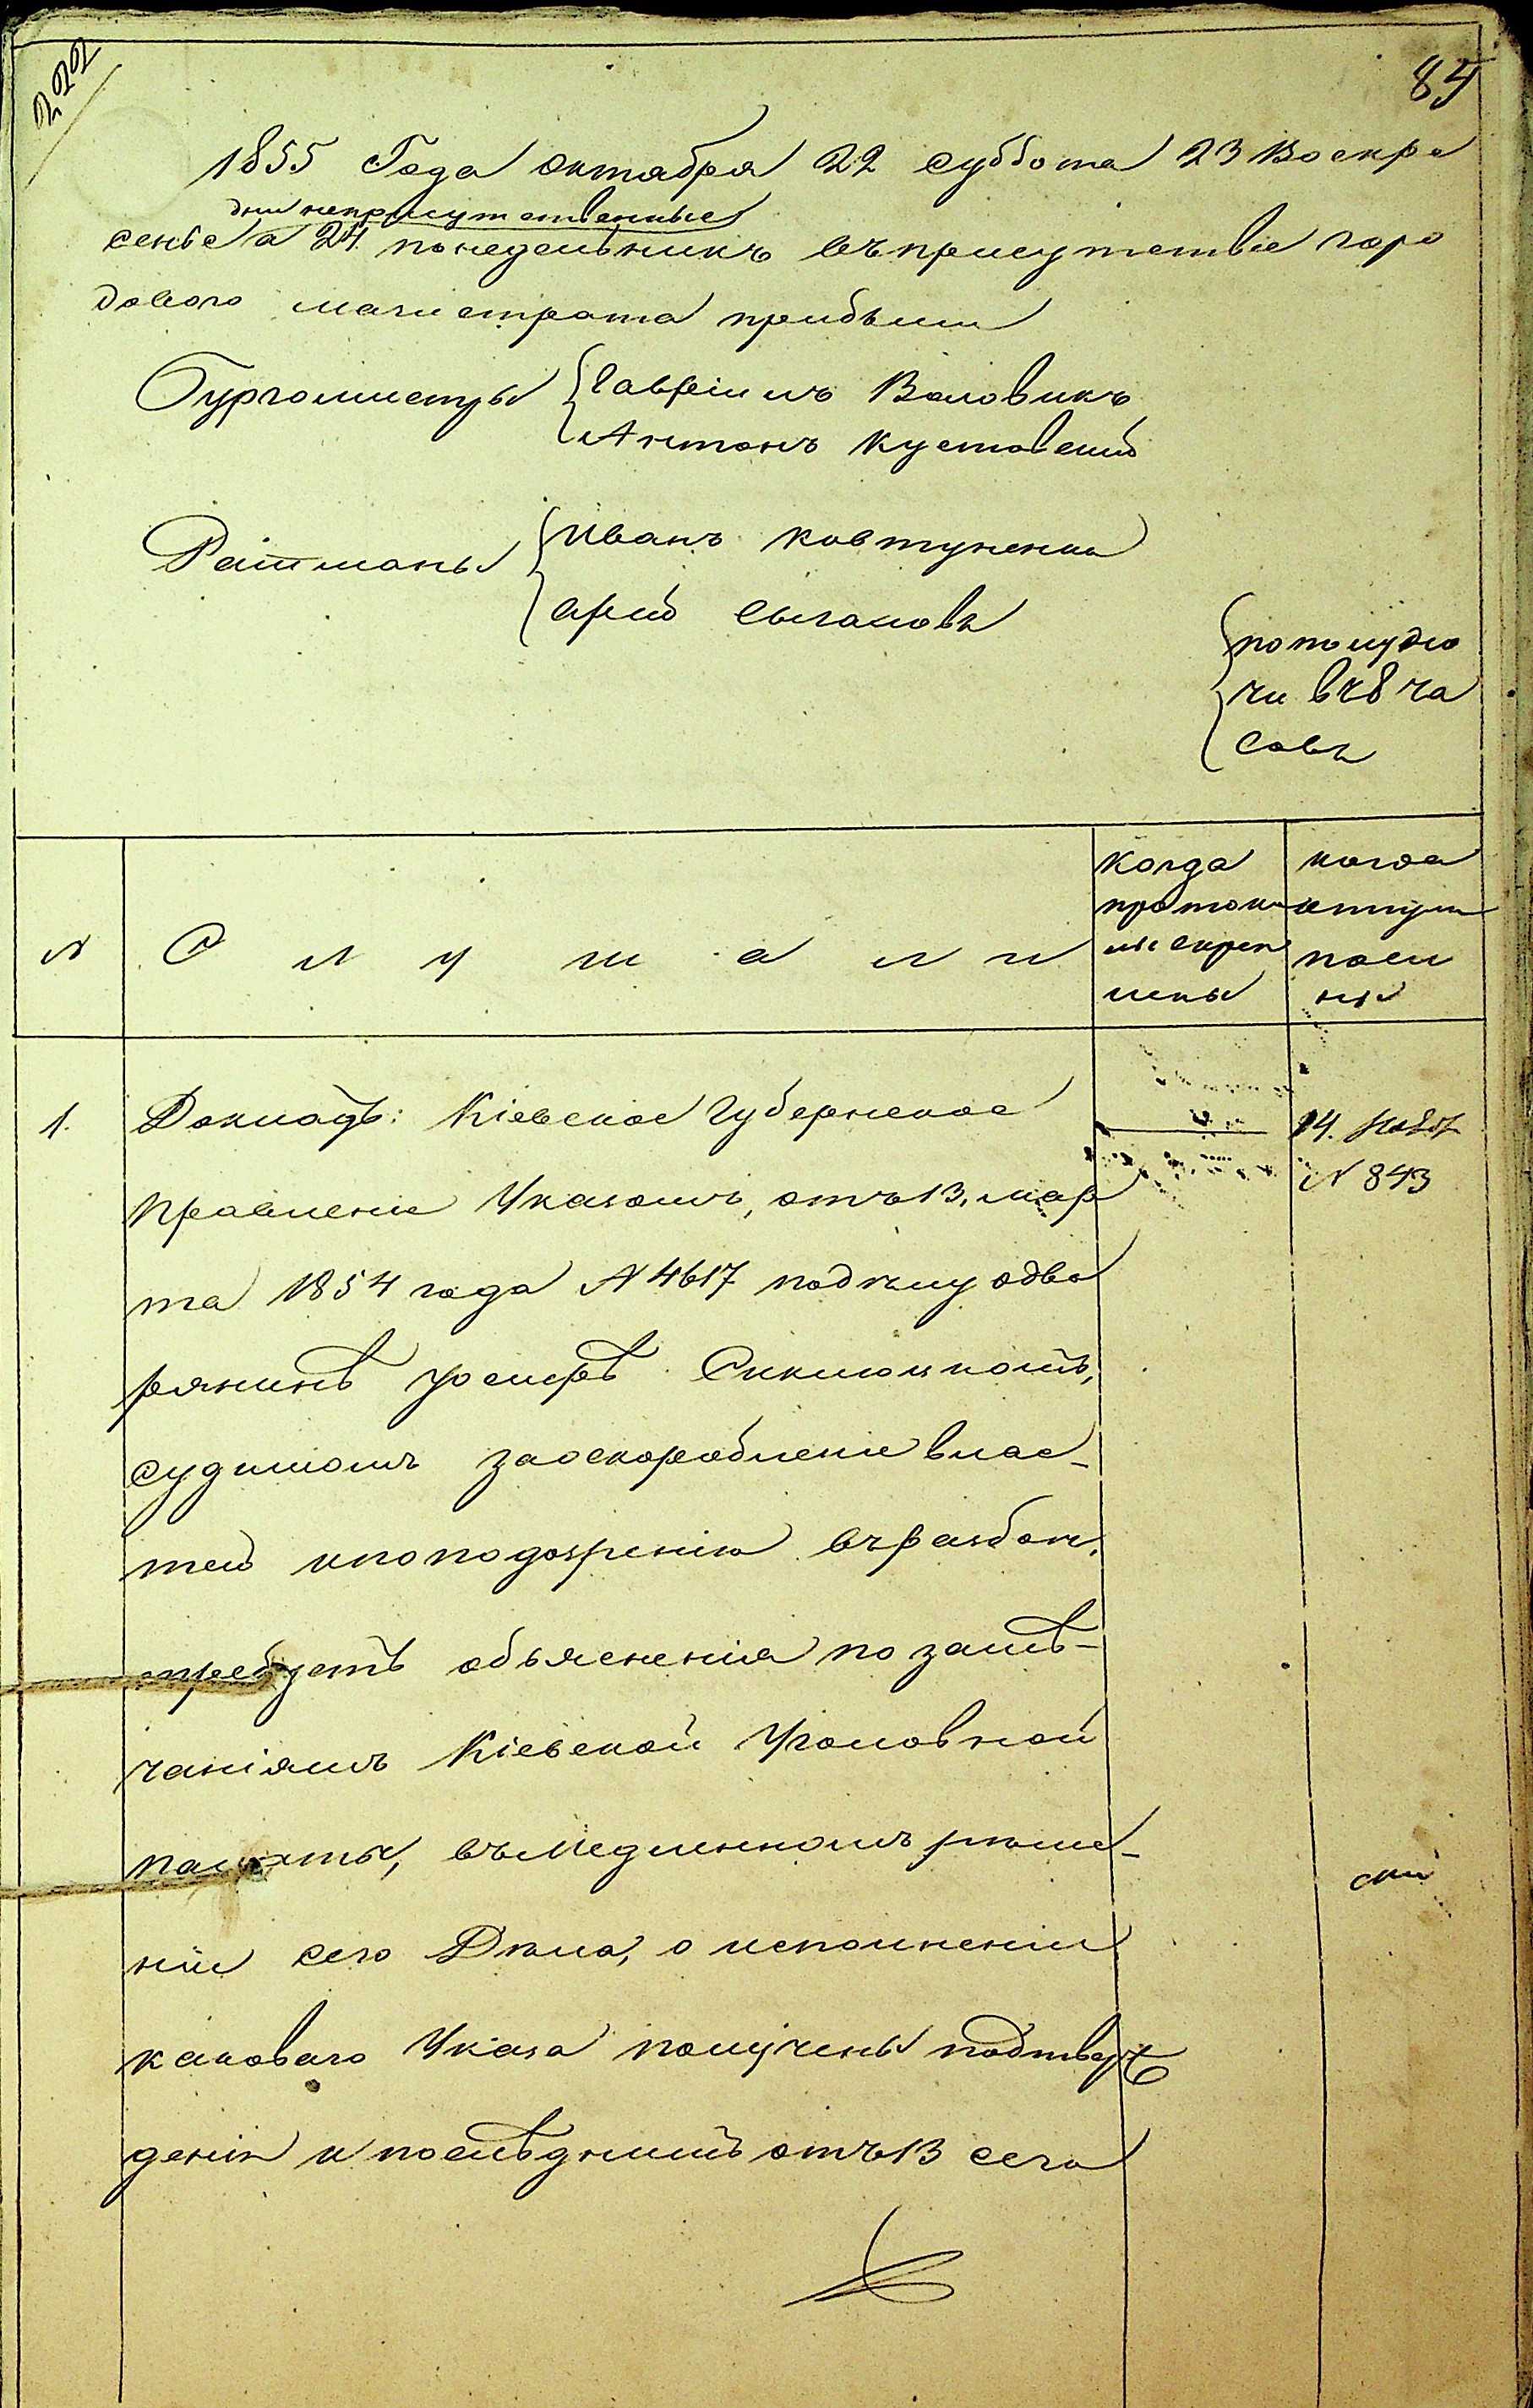 222
85
1855 Года октября 22 суббота 23 Воскре
дни неприсутственные
сенье а 24 понедельникъ въ присутствіе горо
доваго магистрата прибыли
Бургомистры Гавріилъ Воловикъ
Антонъ Кустовскій
Ратманы Иванъ Ковтуненко
Арій
по полудню
чи въ 8 ча
совъ
N
Слушали
когда
протоко
лы скреп
лены
когда
испол
нены
1.
Докладъ: Кіевское Губернское
Правленіе Указомъ, отъ 13, мар
та 1854 года N 4617 по делу о дво
рянинѣ
судимомъ за оскорбленіе влас-
тей и по подозренію въ разбои,
требуетъ объясненія по замѣ-
чаніямъ Кіевской Уголовной
палаты, въ медленномъ реше-
ніи сего Дела, о исполненіи
каковаго Указа получены подтвер
денія и послѣднимъ отъ 13 сего
14.
N 843